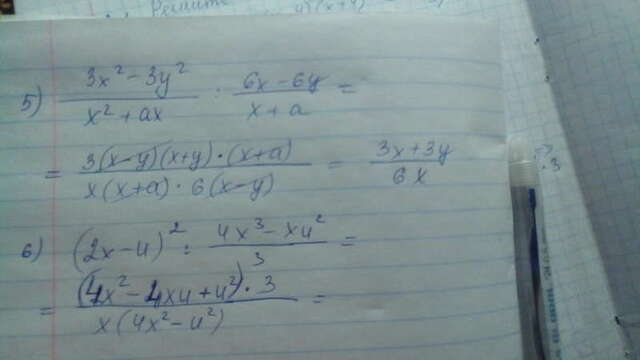 Решите
5) (3x² - 3y²)/(x² + ax) : (6x - 6y)/(x + a) =
= (3(x-y)(x+y)·(x+a))/(x(x+a)·6(x-y)) = (3x+3y)/(6x)
6) (2x-u)² : (4x³ - xu²)/3 =
= ((4x² - 4xu + u²)·3)/(x(4x² - u²)) =